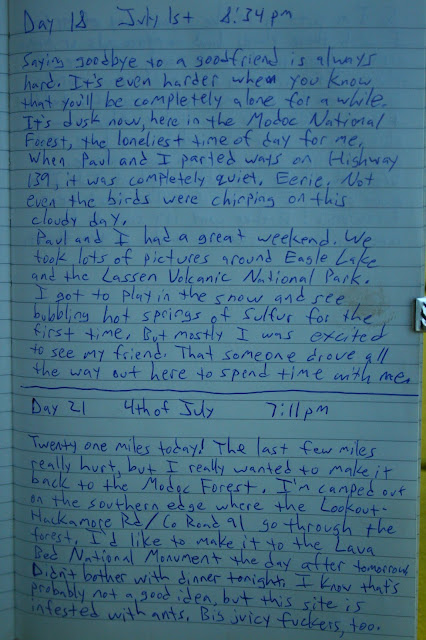 Day 18 July 1st 8:34 pm
Saying goodbye to a goodfriend is always
hard. It's even harder when you know
that you'll be completely alone for a while.
It's dusk now, here in the Modoc National
Forest, the loneliest time of day for me.
When Paul and I parted ways on Highway
139, it was completely quiet. Eerie. Not
even the birds were chirping on this
cloudy day.
Paul and I had a great weekend. We
took lots of pictures around Eagle Lake
and the Lassen Volcanic National Park.
I got to play in the snow and see
bubbling hot springs of sulfur for the
first time. But mostly I was excited
to see my friend. That someone drove all
the way out here to spend time with me.
Day 21 4th of July 7:11 pm
Twenty one miles today! The last few miles
really hurt, but I really wanted to make it
back to the Modoc Forest. I'm camped out
on the southern edge where the Lookout-
Hackamore Rd/Co Road 91 go through the
forest. I'd like to make it to the Lava
Bed National Monument the day after tomorrow.
Didn't bother with dinner tonight. I know that's
probably not a good idea, but this site is
infested with ants. Big juicy fuckers, too.